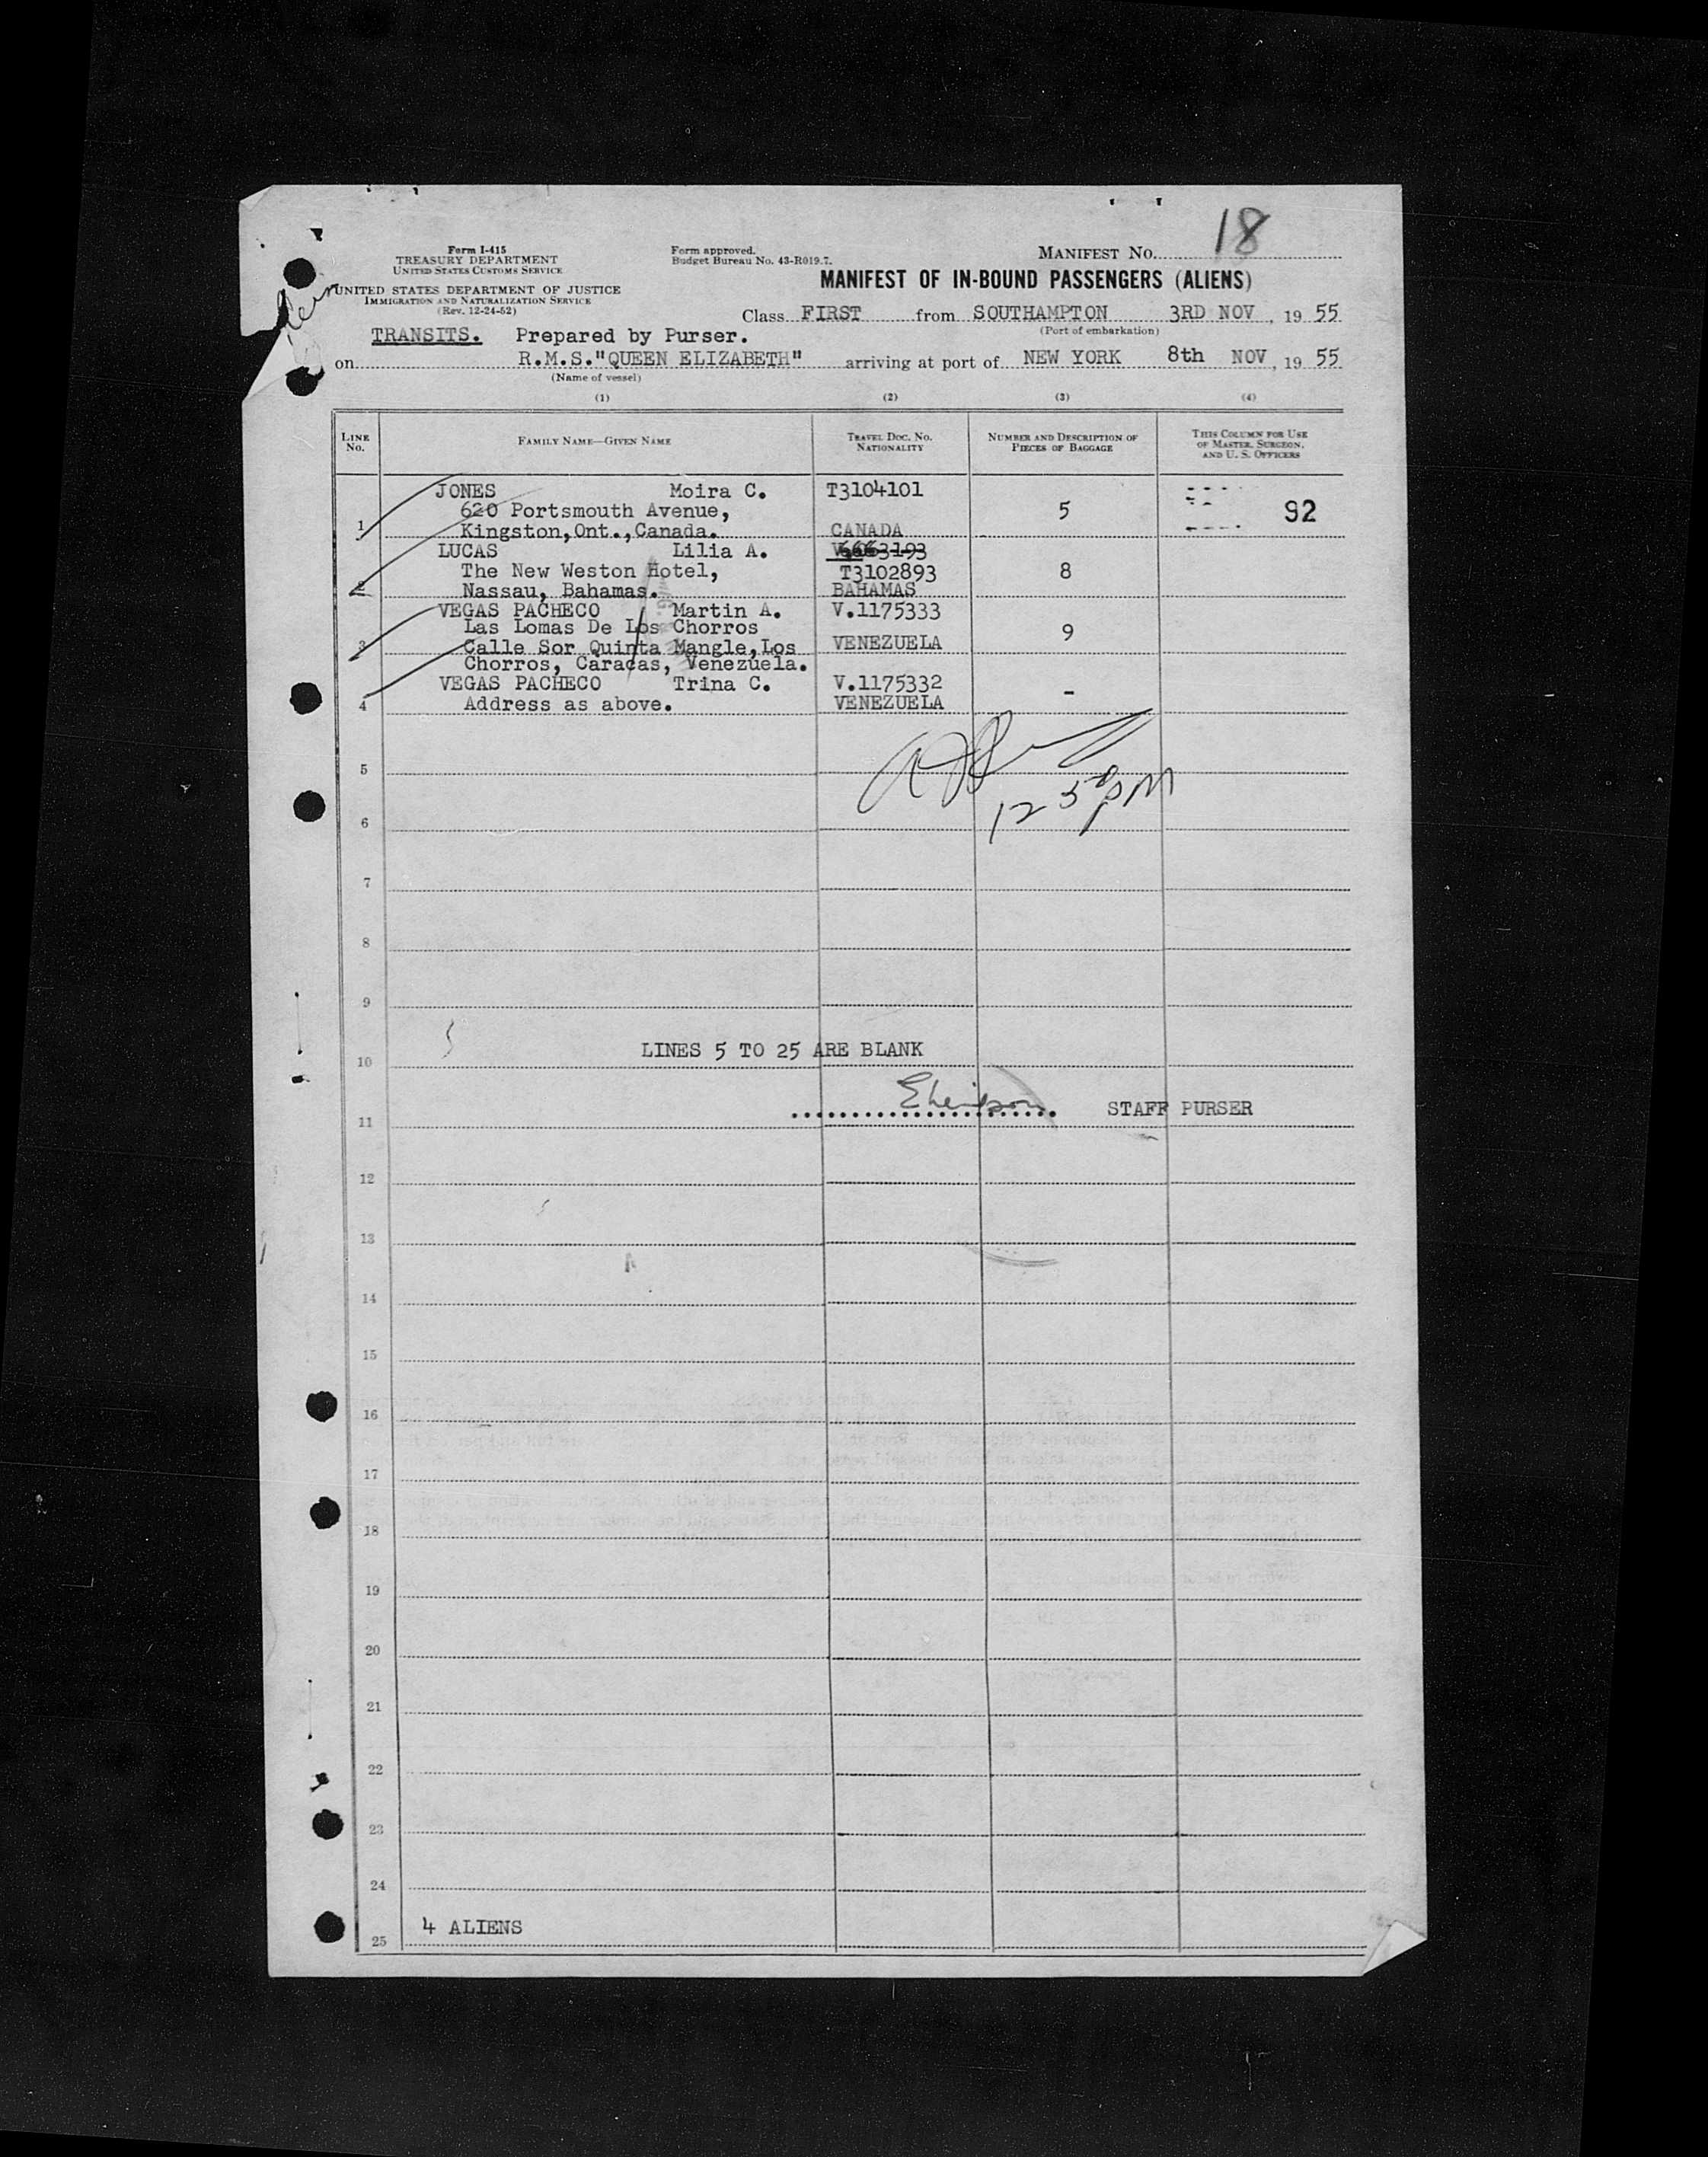 18
Form I-415
TREASURY DEPARTMENT
UNITED STATES CUSTOMS SERVICE
Form approved.
Budget Bureau No. 43-R019.7.
MANIFEST NO.
UNITED STATES DEPARTMENT OF JUSTICE
IMMIGRATION AND NATURALIZATION SERVICE
(Rev. 12-24-52)
MANIFEST OF IN-BOUND PASSENGERS (ALIENS)
Class FIRST from SOUTHAMPTON 3RD NOV, 19 55
(Port of embarkation)
TRANSITS. Prepared by Purser.
on R.M.S."QUEEN ELIZABETH" arriving at port of NEW YORK 8th NOV, 19 55
(Name of vessel)
(1) (2) (3) (4)
LINE NO. FAMILY NAME—GIVEN NAME TRAVEL DOC. NO. NATIONALITY NUMBER AND DESCRIPTION OF PIECES OF BAGGAGE THIS COLUMN FOR USE OF MASTER, SURGEON, AND U. S. OFFICERS
JONES Moira C. T3104101
620 Portsmouth Avenue, 5 92
1 Kingston,Ont.,Canada. CANADA
LUCAS Lilia A.
The New Weston Hotel, T3102893 8
2 Nassau, Bahamas. BAHAMAS
VEGAS PACHECO Martin A. V.1175333
Las Lomas De Los Chorros 9
3 Calle Sor Quinta Mangle,Los VENEZUELA
Chorros, Caracas, Venezuela.
VEGAS PACHECO Trina C. V.1175332 -
4 Address as above. VENEZUELA
5
12 50 PM
6
7
8
9
LINES 5 TO 25 ARE BLANK
10
STAFF PURSER
11
12
13
14
15
16
17
18
19
20
21
22
23
24
4 ALIENS
25